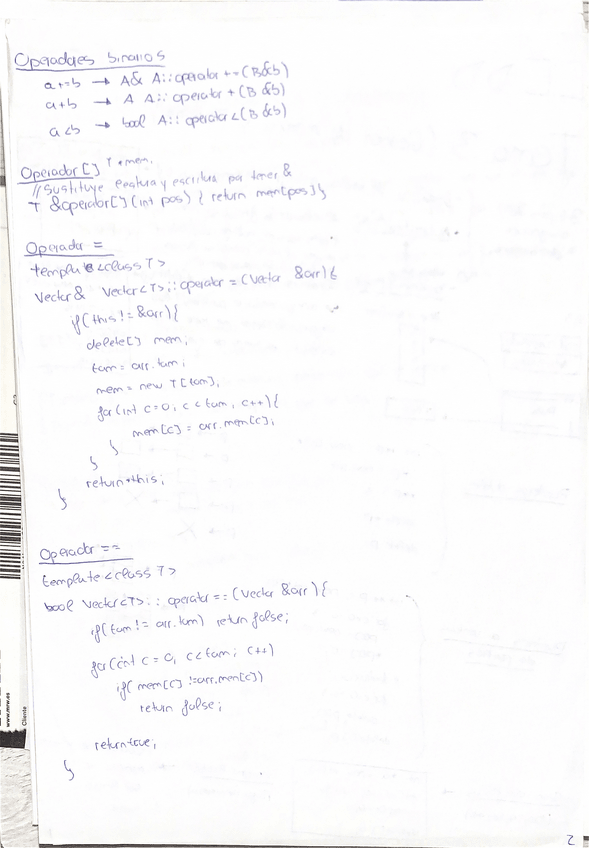 Operadores binarios
a+=b → A& A::operator+=(B&b)
a+b → A A::operator+(B&b)
a<b → bool A::operator<(B&b)
Operador[] T*mem;
//Sustituye lectura y escritura pa tener &
T &operador[](int pos) { return mem[pos]}
Operador =
template<class T>
Vector& Vector<T>::operator=(Vector &arr){
if(this!=&arr){
delete[] mem;
tam=arr.tam;
mem=new T[tam];
for(int c=0; c<tam; c++){
mem[c]=arr.mem[c];
}
}
return*this;
}
Operador ==
template<class T>
bool Vector<T>::operator==(Vector &arr){
if(tam!=arr.tam) return false;
for(int c=0; c<tam; c++)
if(mem[c]!=arr.mem[c])
return false;
return true;
}
2
www.mrw.es
Cliente